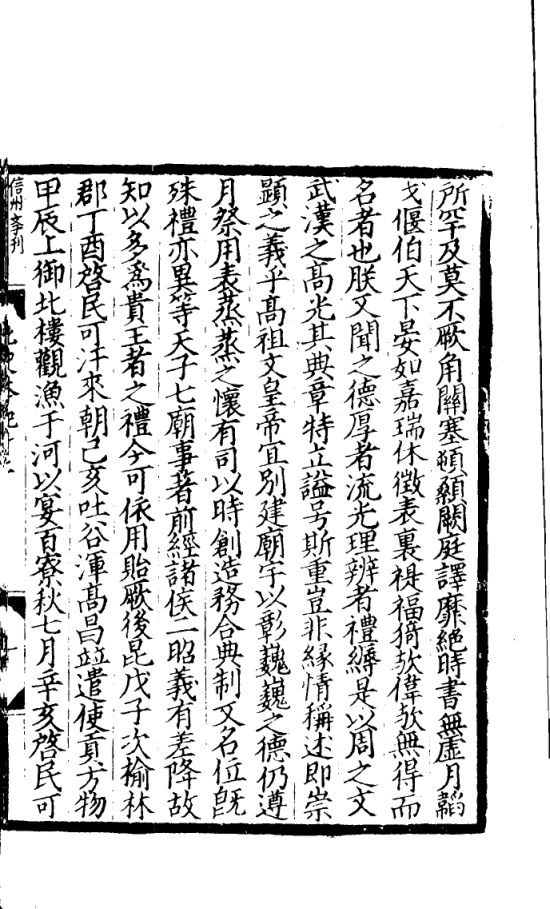 所罕及莫不厥角關塞頓顙闕庭譯靡絶時書無虛月韜
戈偃伯天下晏如嘉瑞休徵表裏禔福猗歟偉歟無得而
名者也朕又聞之德厚者流光理辨者禮縟是以周之文
武漢之高光其典章特立謚号斯重豈非緣情稱述即崇
顯之義乎高祖文皇帝宜别建廟宇以彰巍巍之德仍遵
月祭用表蒸蒸之懷有司以時創造務合典制又名位旣
殊禮亦異等天子七廟事著前經諸侯二昭義有差降故
知以多爲貴王者之禮今可依用貽厥後昆戊子次榆林
郡丁酉啓民可汗來朝己亥吐谷渾高昌竝遣使貢方物
甲辰上御北樓觀漁于河以宴百寮秋七月辛亥啓民可
信州路刊